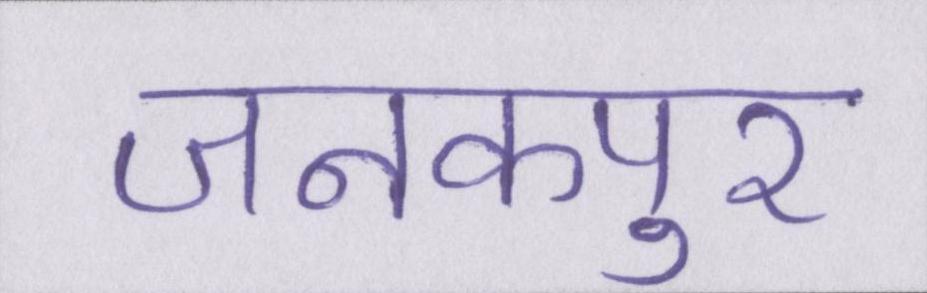 जनकपुर